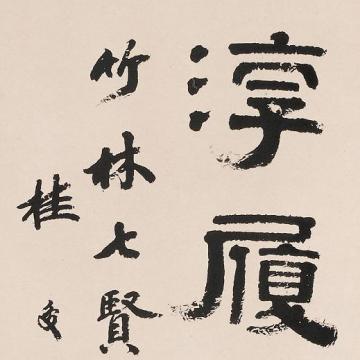 淳履
竹林七賢
桂